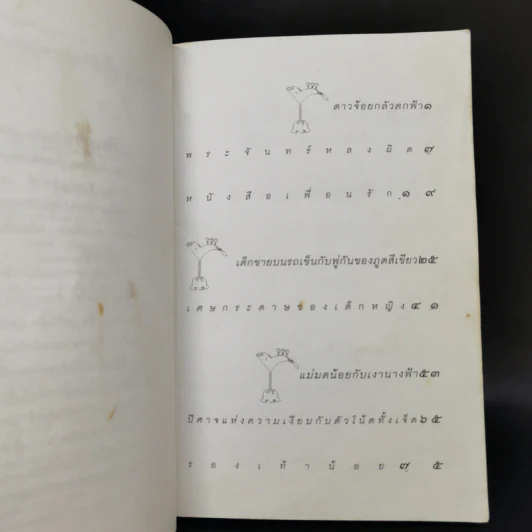 ดาวจ้อยกลัวตกฟ้า๑
พระจันทร์หลงผิด๗
หนังสือเพื่อนรัก๑๙
เด็กชายบนรถเข็นกับพู่กันของภูตสีเขียว๒๕
เศษกระดาษของเด็กหญิง๔๑
แม่มดน้อยกับเงานางฟ้า๕๓
ปีศาจแห่งความเงียบกับตัวโน้ตทั้งเจ็ด๖๕
รองเท้าน้อย๗๕